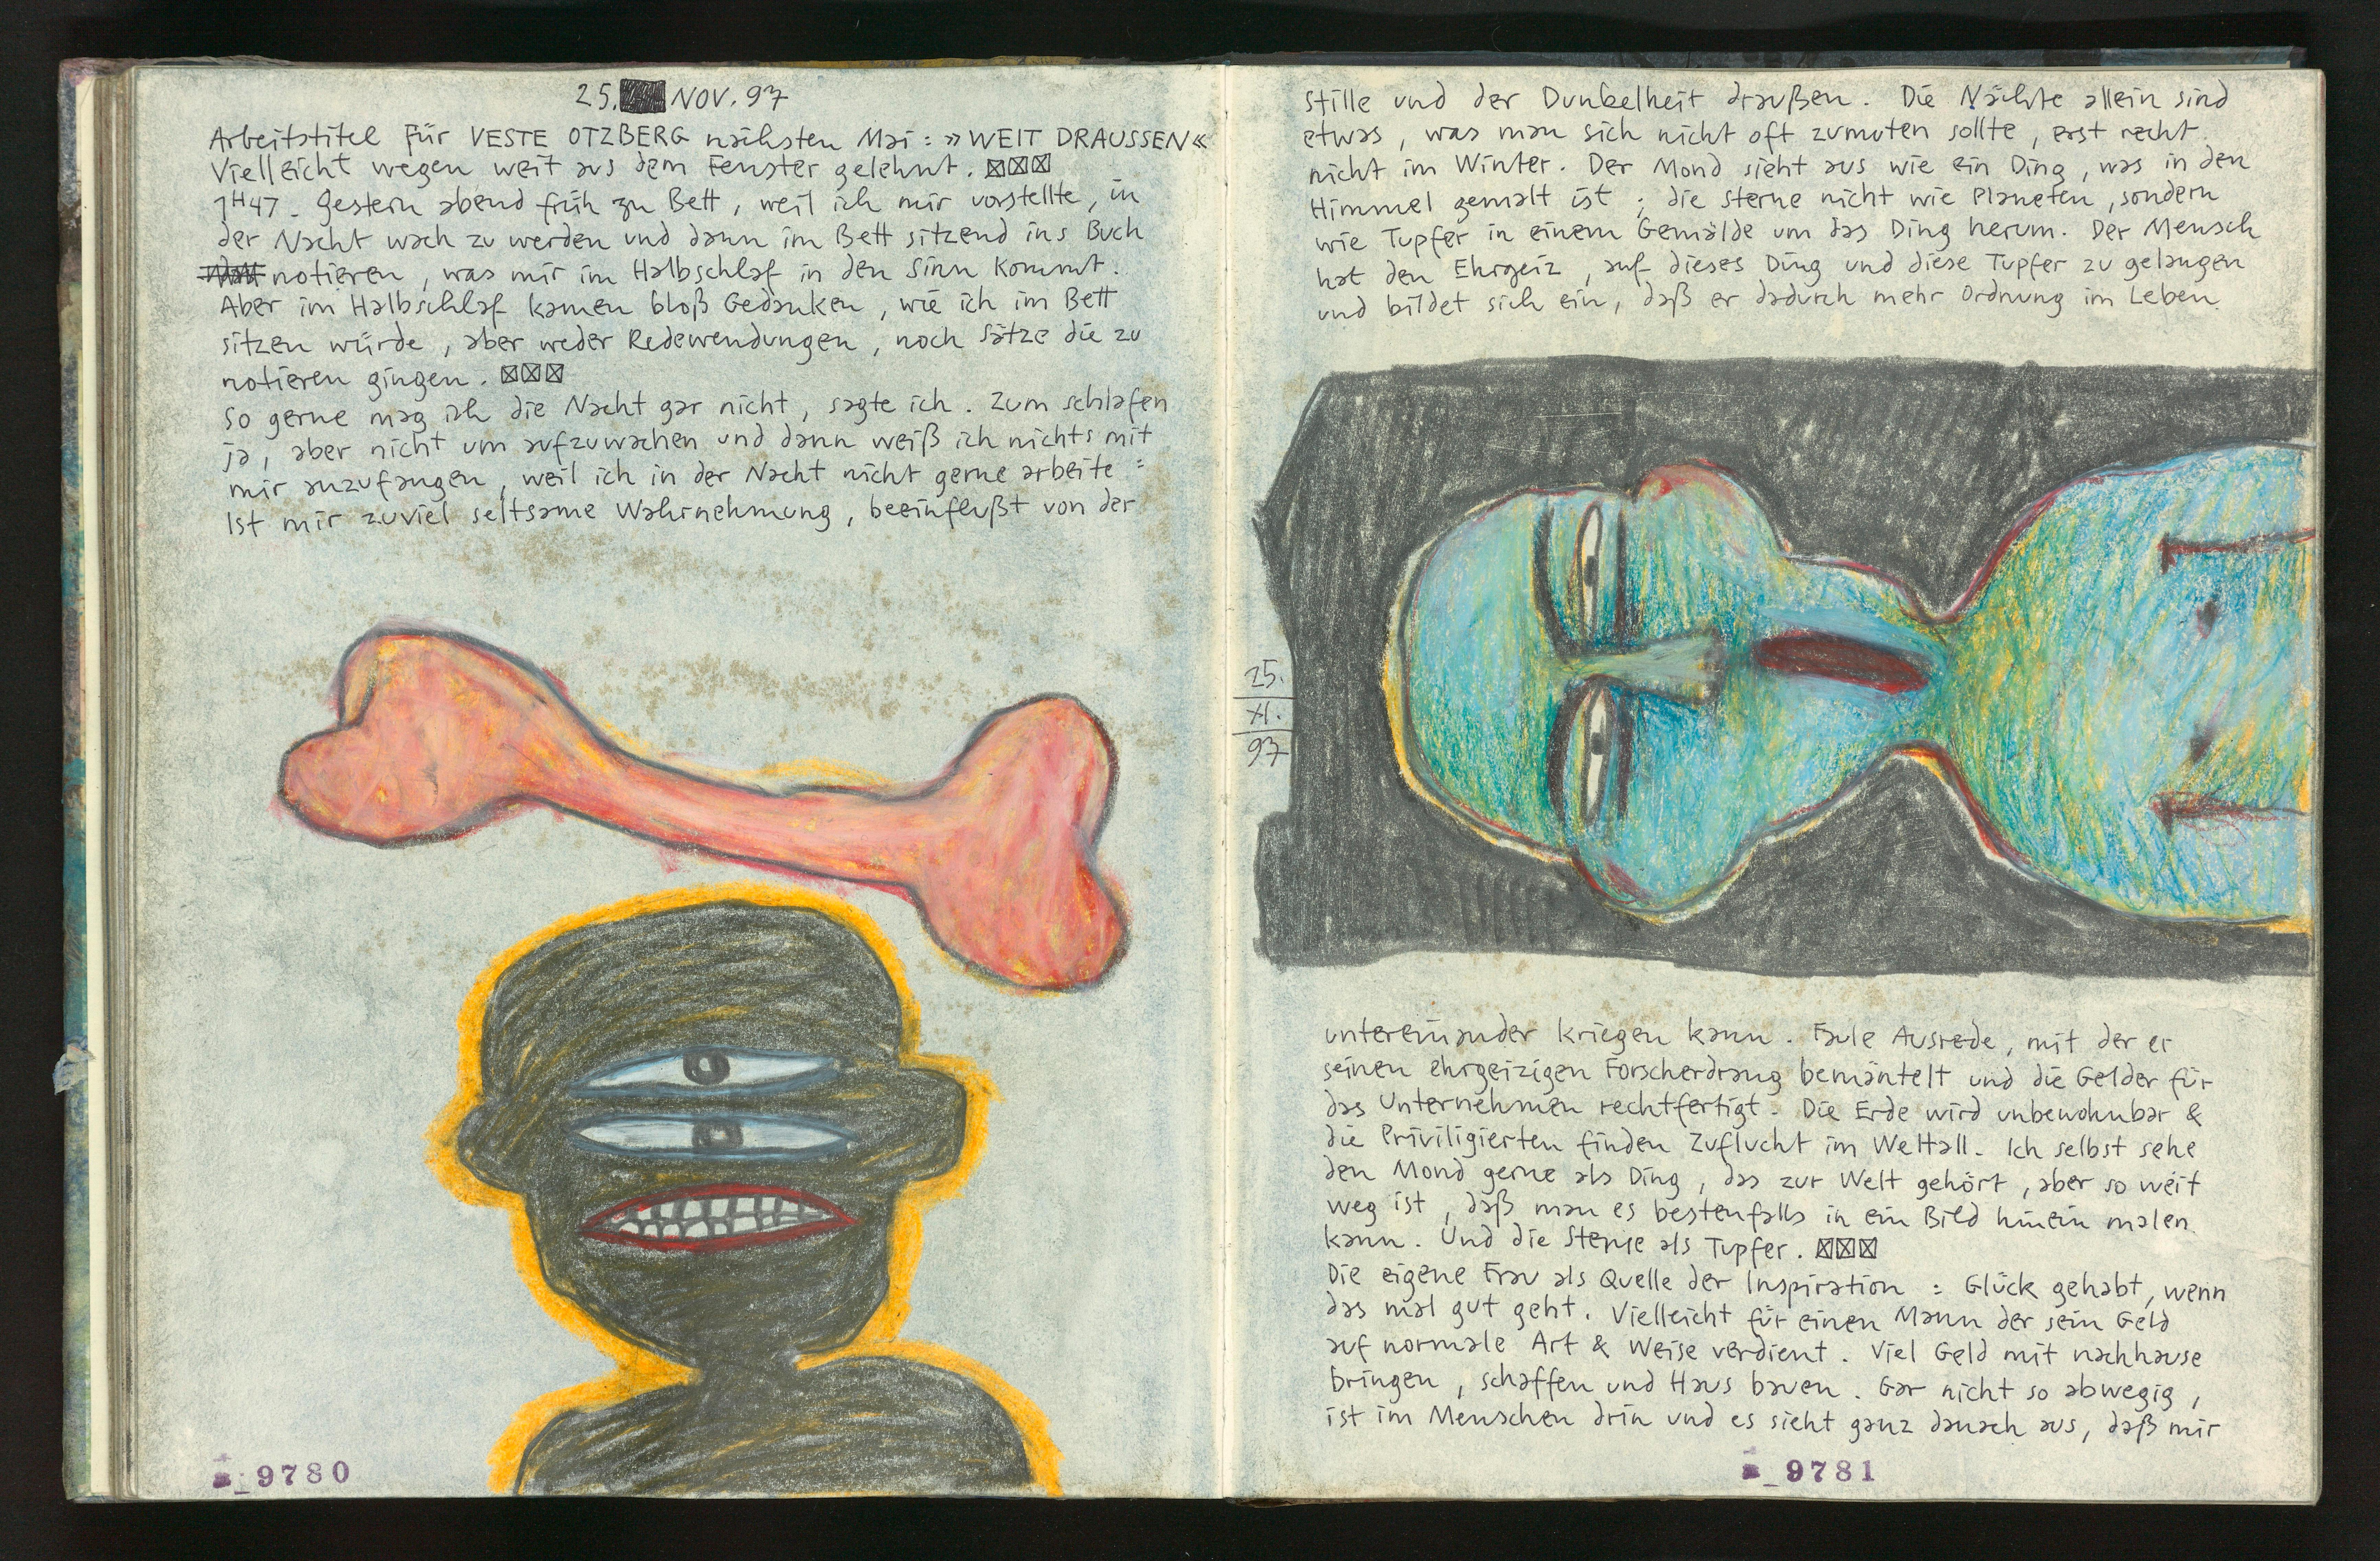 25. NOV. 97
Arbeitstitel für VESTE OTZBERG nächsten Mai : »WEIT DRAUSSEN«
Vielleicht wegen weit aus dem Fenster gelehnt. ☒☒☒
7H47 - Gestern abend früh zu Bett, weil ich mir vorstellte, in
der Nacht wach zu werden und dann im Bett sitzend ins Buch
notieren, was mir im Halbschlaf in den Sinn kommt.
Aber im Halbschlaf kamen bloß Gedanken, wie ich im Bett
sitzen würde, aber weder Redewendungen, noch Sätze die zu
notieren gingen. ☒☒☒
So gerne mag ich die Nacht gar nicht, sagte ich. Zum schlafen
ja, aber nicht um aufzuwachen und dann weiß ich nichts mit
mir anzufangen, weil ich in der Nacht nicht gerne arbeite :
Ist mir zuviel seltsame Wahrnehmung, beeinflußt von der
9780
Stille und der Dunkelheit draußen. Die Nächte allein sind
etwas, was man sich nicht oft zumuten sollte, erst recht
nicht im Winter. Der Mond sieht aus wie ein Ding, was in den
Himmel gemalt ist ; die Sterne nicht wie Planeten, sondern
wie Tupfer in einem Gemälde um das Ding herum. Der Mensch
hat den Ehrgeiz, auf dieses Ding und diese Tupfer zu gelangen
und bildet sich ein, daß er dadurch mehr Ordnung im Leben
25.
XI.
97
untereinander kriegen kann. Faule Ausrede, mit der er
seinen ehrgeizigen Forscherdrang bemäntelt und die Gelder für
das Unternehmen rechtfertigt. Die Erde wird unbewohnbar &
die Priviligierten finden Zuflucht im Weltall. Ich selbst sehe
den Mond gerne als Ding, das zur Welt gehört, aber so weit
weg ist, daß man es bestenfalls in ein Bild hinein malen
kann. Und die Sterne als Tupfer. ☒☒☒
Die eigene Frau als Quelle der Inspiration : Glück gehabt, wenn
das mal gut geht. Vielleicht für einen Mann der sein Geld
auf normale Art & Weise verdient. Viel Geld mit nachhause
bringen, schaffen und Haus bauen. Gar nicht so abwegig,
ist im Menschen drin und es sieht ganz danach aus, daß mir
9781